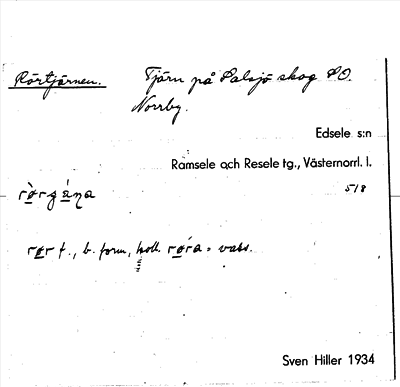 Rörtjärnen. Tjärn på Salsjö skog SO.
Norrby.
Edsele s:n
Ramsele och Resele tg., Västernorrl. l.
518
rørgána
rør f., b. form, koll. røra = vass.
Sven Hiller 1934